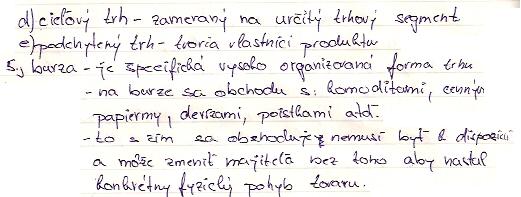 d) cieľový trh - zameraný na určitý trhový segment
e) podchytený trh - tvoria vlastníci produktu
5, burza - je špecifická vysoko organizovaná forma trhu
- na burze sa obchodu s: komoditami, cennými
papiermy, devízami, poistkami atď.
- to s čím sa obchoduje nemusí byť k dispozícii
a môže zmeniť majiteľa bez toho aby nastal
konkrétny fyzický pohyb tovaru.